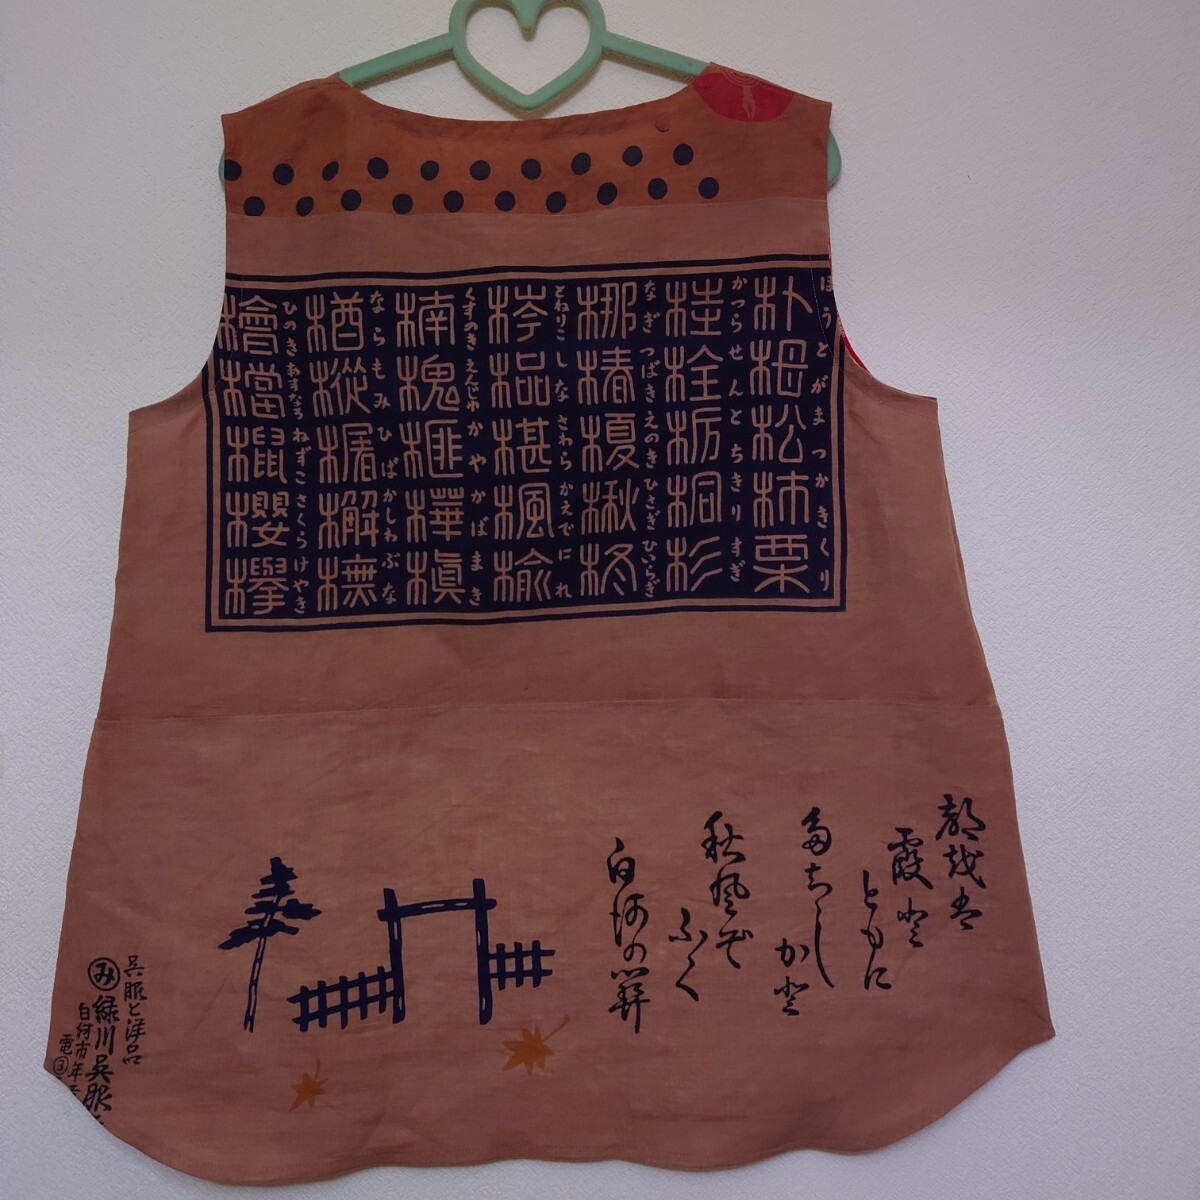 朴栂松柿栗
ほうとがまつかきくり
桂栓栃桐杉
かつらせんとちきりすぎ
梛椿榎楸柊
なぎつばきえのきひさぎひいらぎ
梣榀椹楓楡
とねりこしなさわらかえでにれ
楠槐榧樺槇
くすのきえんじゅかやかばまき
楢樅椐檞橅
ならもみひばかしわぶな
檜檔櫻欅
ひのきあすなろねずこさくらけやき
都越者
霞登
ともに
多ちし
か登
秋風ぞ
ふく
白河の関
呉服と洋品
み 緑川呉服
白河市年
電③